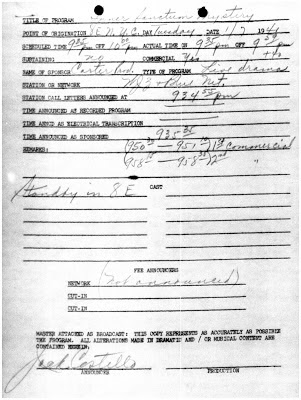 TITLE OF PROGRAM Inner Sanctum Mystery
POINT OF ORIGINATION 8E N.Y.C. DAY Tuesday DATE 1/7 46
SCHEDULED TIME 9:30 pm OFF 10 pm ACTUAL TIME ON 9 35 pm OFF 9 59 pm
SUSTAINING no COMMERCIAL Yes
NAME OF SPONSOR Carter Prod. TYPE OF PROGRAM Live drama
STATION OR NETWORK Net
STATION CALL LETTERS ANNOUNCED AT 9 34 55 pm
TIME ANNOUNCED AS RECORDED PROGRAM
TIME ANNCD AS ELECTRICAL TRANSCRIPTION
TIME ANNOUNCED AS SPONSORED 9 35 36
REMARKS: (9 50 — 9 51 1st Commercial
9 58 — 9 58 2nd "
CAST
Standby in 8E
FEE ANNOUNCERS
NETWORK (Not announced)
CUT-IN
CUT-IN
MASTER ATTACHED AS BROADCAST: THIS COPY REPRESENTS AS ACCURATELY AS POSSIBLE
THE PROGRAM. ALL ALTERATIONS MADE IN DRAMATIC AND / OR MUSICAL CONTENT ARE
CONTAINED HEREIN:
Jack Costello
ANNOUNCER PRODUCTION